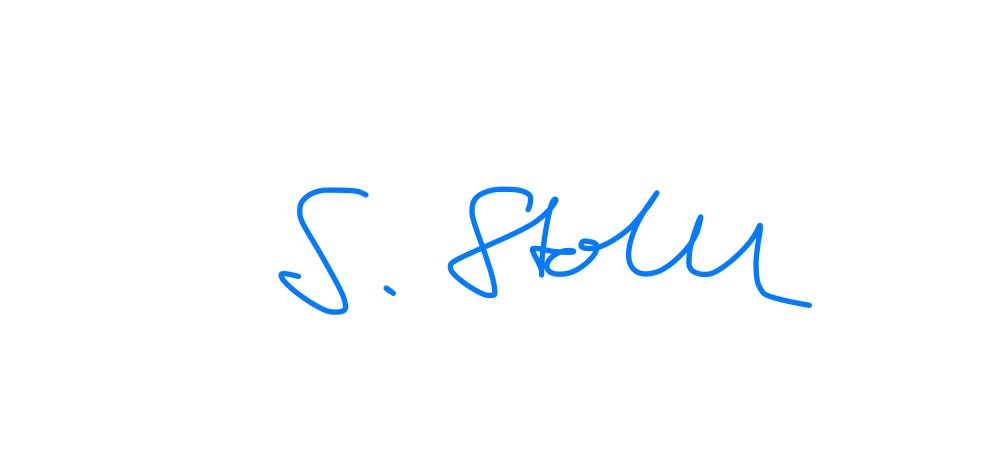 S. Stoll